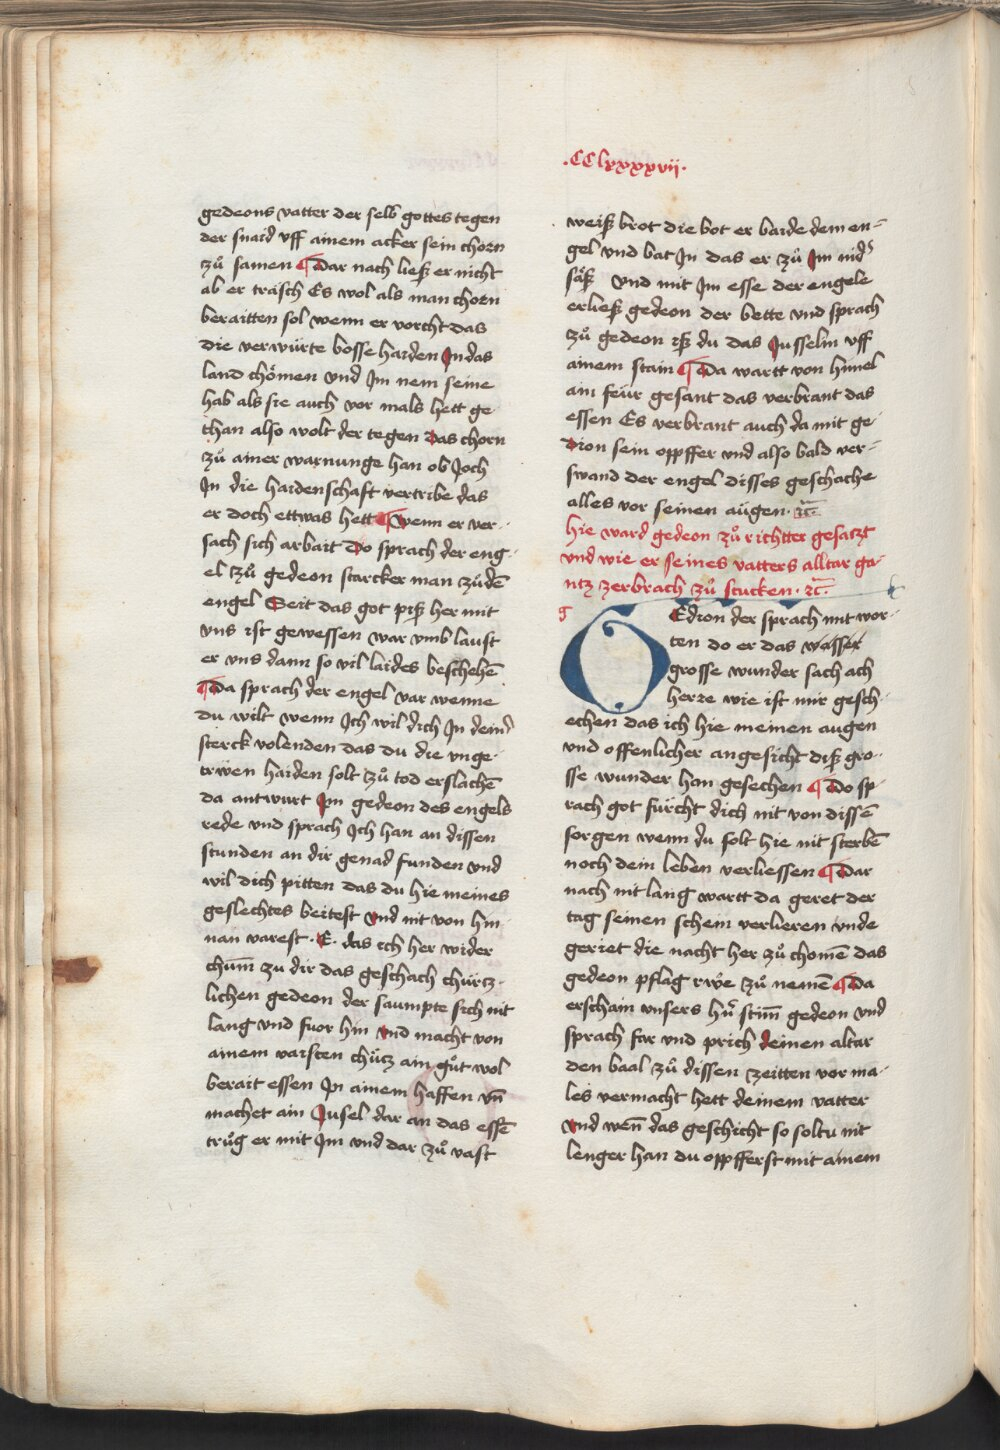 .CClxxxxvii.
gedeons vatter der selb gottes tegen
der snaid vff ainem acker sein chorn
zů samen ¶ Dar nach ließ er nicht
ab er trasch Es wol als man chorn
beraitten sol wenn er vorcht das
die verwürte bosse haiden In das
land chömen vnd Im nem seine
hab als sie auch vor mals hett ge
than also wolt der tegen das chorn
zů ainer warnunge han ob Joch
In die haidenschaft vertribe das
er doch ettwas hett ¶ Wenn er ver-
sach sich arbait Do sprach der eng-
el zů gedeon starcker man zů dē
engel Seit das got piß her mit
vns ist gewessen war vmb laust
er vns dann so vil laides beschehē
¶ Da sprach der engel var wenne
du wilt wenn Ich wil dich In deinˀ
sterck volenden das du die vnge-
trwen haiden solt zů tod erslachē
da antwurt Im gedeon des engels
rede vnd sprach Ich han an dissen
stunden an dir genad funden vnd
wil dich pitten das du hie meines
geslechtes beitest vnd nit von hin
nan varest · E · das ich her wider
chum̄ zu dir das geschach chürtz-
lichen gedeon der saumpte sich nit
lang vnd fuor hin vnd macht von
ainem varsten chütz ain gůt wol
berait essen In ainem haffen vn̄
machet ain Jusel dar an das essē
trůg er mit Im vnd dar zů vast
weiß brot die bot er baide dem en-
gel vnd bat In das er zů Im nidˀ
säß vnd mit Im esse der engele
erließ gedeon der bette vnd sprach
zů gedeon iß du das Jusselin vff
ainem stain ¶ Da wartt von himel
ain feür gesant das verbrant das
essen Es verbrant auch da mit ge-
dion sein oppffer vnd also bald ver-
swand der engel disses geschache
alles vor seinen augen · ꝛc̄ ·
hie ward gedeon zů richtter gesatzt
vnd wie er seines vatters alltar ga-
ntz zerbrach zů stucken · ꝛc̄ ·
g
GEdion der sprach mit wor-
ten do er das wasser
grosse wunder sach ach
herre wie ist mir gesch-
echen das ich hie meinen augen
vnd offenlicher angesicht diß gro-
sse wunder han gesechen ¶ Do sp-
rach got fürcht dich nit von dissē
sorgen wenn du solt hie nit sterbē
noch dein leben verliessen ¶ Dar
nach nit lang wartt da geret der
tag seinen schein verlieren vnde
geriet die nacht her zů chomē das
gedeon pflag rwe zů nemē ¶ Da
erschain vnsers hˀrˀ stim̄ gedeon vnd
sprach far vnd prich deinen altar
den baal zů dissen zeitten vor ma-
les vermacht hett deinem vatter
vnd wen̄ das geschicht so soltu nit
lenger han du oppfferst mit ainem